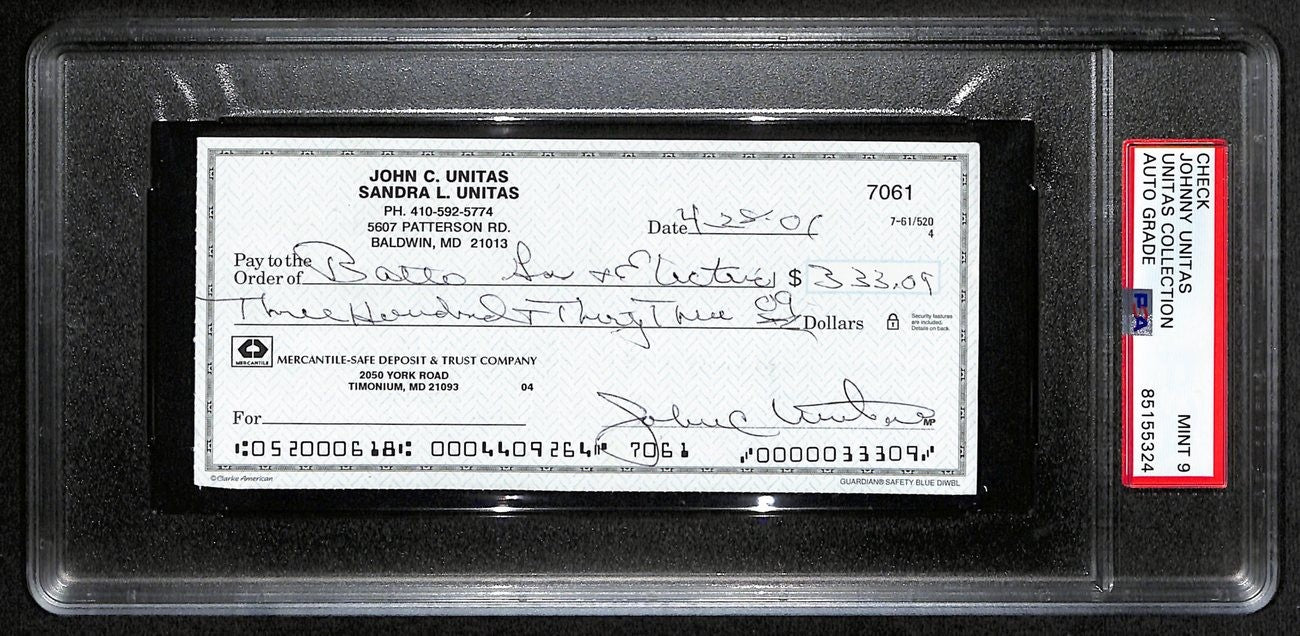 JOHN C. UNITAS
SANDRA L. UNITAS
PH. 410-592-5774
5607 PATTERSON RD.
BALDWIN, MD 21013
7061
7-61/520
4
Date 4-28-01
Pay to the
Order of Balto Gas + Electric $ 333.09
Three Hundred + Thirty Three 09 Dollars
Security features
are included.
Details on back.
MERCANTILE
MERCANTILE-SAFE DEPOSIT & TRUST COMPANY
2050 YORK ROAD
TIMONIUM, MD 21093 04
For John C Unitas
MP
⑆052000618⑆ 0004409264⑈ 7061 ⑈0000033309⑈
©Clarke American
GUARDIAN® SAFETY BLUE DIWBL
CHECK
JOHNNY UNITAS
UNITAS COLLECTION
AUTO GRADE MINT 9
PSA
85155324